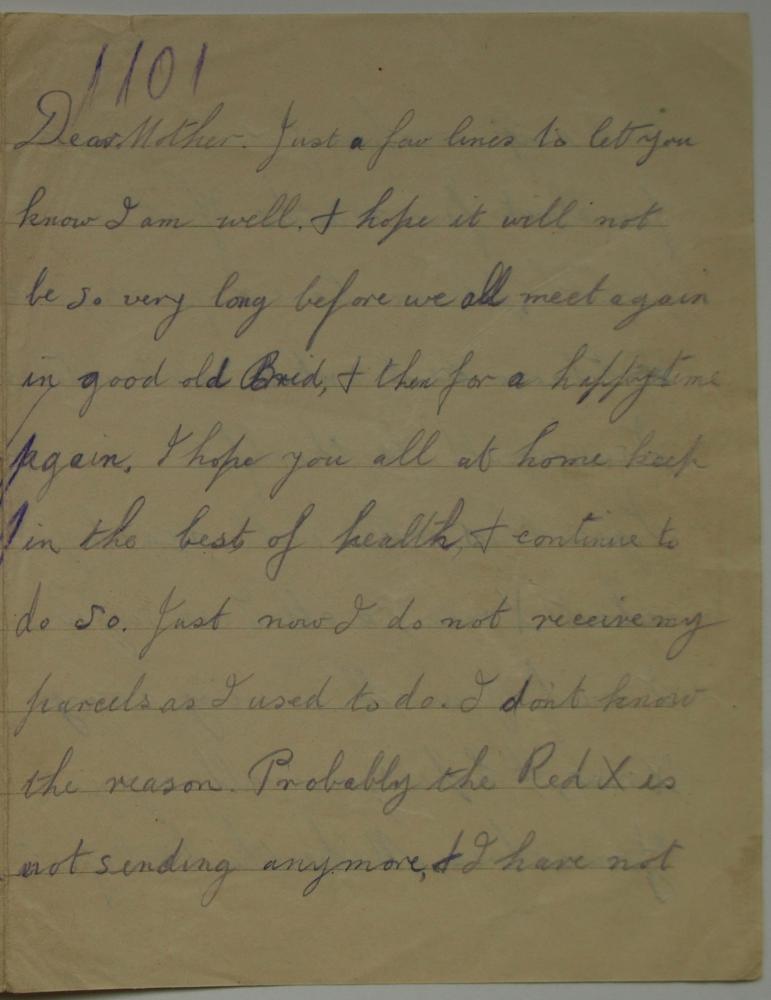 1101
Dear Mother. Just a few lines to let you
know I am well. & hope it will not
be so very long before we all meet again
in good old Brid, & then for a happy time
again. I hope you all at home keep
in the best of health, & continue to
do so. Just now I do not receive my
parcels as I used to do. I dont know
the reason. Probably the Red X is
not sending anymore, & I have not